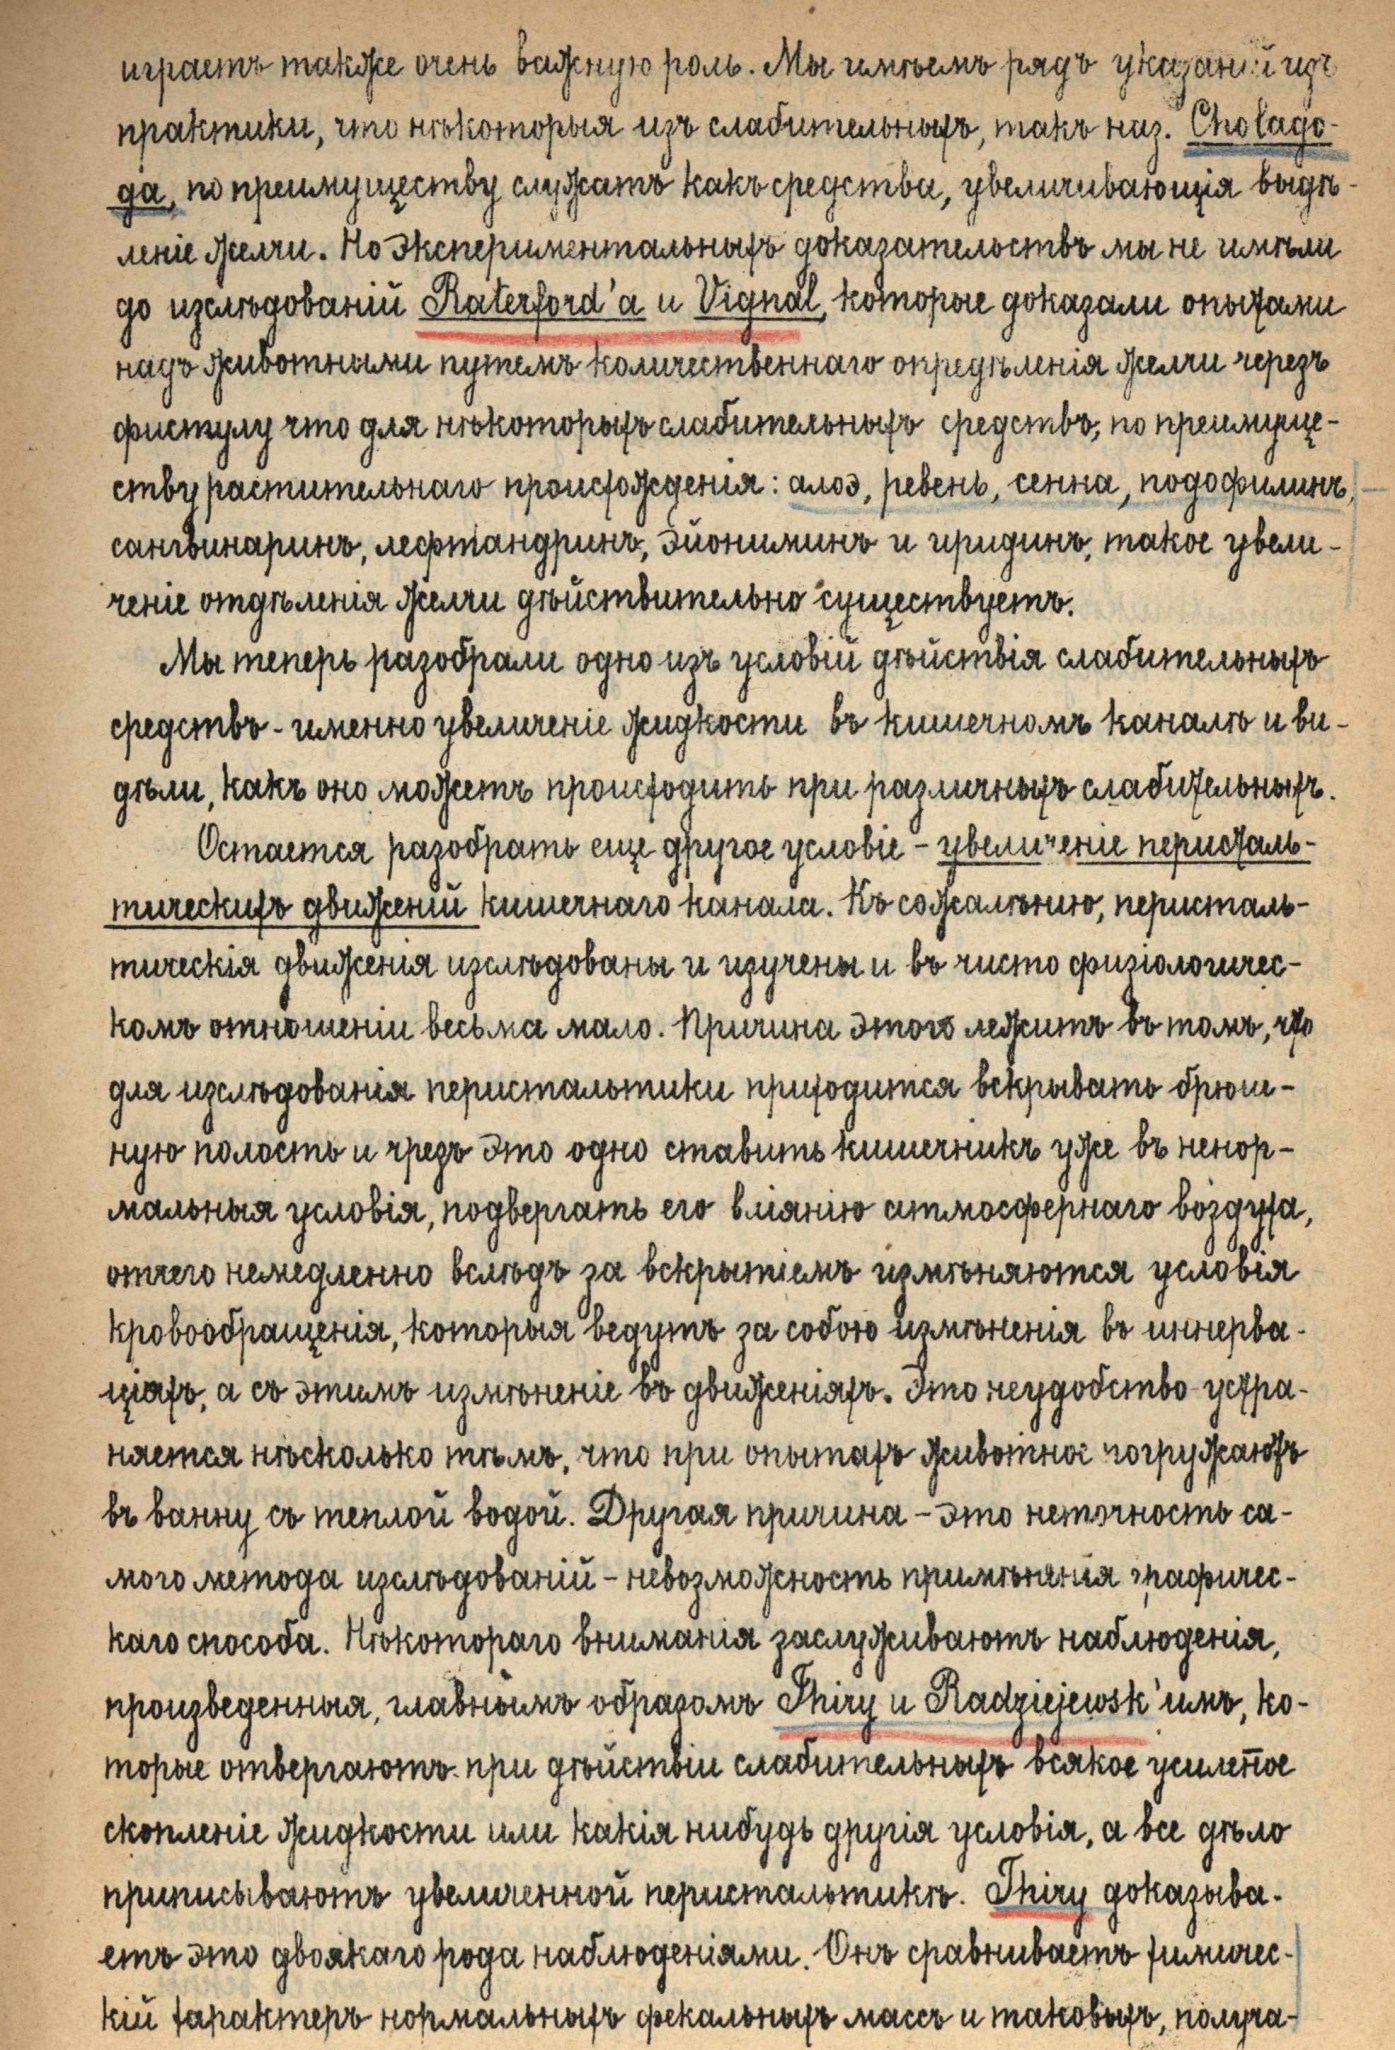 играетъ также очень важную роль. Мы имѣемъ рядъ указаній изъ
практики, что нѣкоторыя изъ слабительныхъ, такъ наз. Cholago-
ga, по преимуществу служатъ какъ средства, увеличивающія выдѣ-
леніе желчи. Но экспериментальныхъ доказательствъ мы не имѣли
до изслѣдованій Raterford'а и Vignal, которые доказали опытами
надъ животными путемъ количественнаго опредѣленія желчи черезъ
фистулу что для нѣкоторыхъ слабительныхъ средствъ, по преимуще-
ству растительнаго происхожденія: алоэ, ревень, сенна, подофилинъ,
сангвинаринъ, лефтандринъ, эйониминъ и иридинъ, такое увели-
ченіе отдѣленія желчи дѣйствительно существуетъ.
Мы теперь разобрали одно изъ условій дѣйствія слабительныхъ
средствъ - именно увеличеніе жидкости въ кишечномъ каналѣ и ви-
дѣли, какъ оно можетъ происходить при различныхъ слабительныхъ.
Остается разобрать еще другое условіе - увеличеніе перисталь-
тическихъ движеній кишечнаго канала. Къ сожалѣнію, перисталь-
тическія движенія изслѣдованы и изучены и въ чисто физіологичес-
комъ отношеніи весьма мало. Причина этого лежитъ въ томъ, что
для изслѣдованія перистальтики приходится вскрывать брюш-
ную полость и чрезъ это одно ставить кишечникъ уже въ ненор-
мальныя условія, подвергать его вліянію атмосфернаго воздуха,
отчего немедленно вслѣдъ за вскрытіемъ измѣняются условія
кровообращенія, которыя ведутъ за собою измѣненія въ иннерва-
ціяхъ, а съ этимъ измѣненіе въ движеніяхъ. Это неудобство устра-
няется нѣсколько тѣмъ, что при опытахъ животное погружаютъ
въ ванну съ теплой водой. Другая причина - это неточность са-
мого метода изслѣдованій - невозможность примѣненія графичес-
каго способа. Нѣкотораго вниманія заслуживаютъ наблюденія,
произведенныя, главнымъ образомъ Thiry и Radziejewsk'имъ, ко-
торые отвергаютъ при дѣйствіи слабительныхъ всякое усиленное
скопленіе жидкости или какія нибудь другія условія, а все дѣло
приписываютъ увеличенной перистальтикѣ. Thiry доказыва-
етъ это двоякаго рода наблюденіями. Онъ сравниваетъ химичес-
кій характеръ нормальныхъ фекальныхъ массъ и таковыхъ, получа-